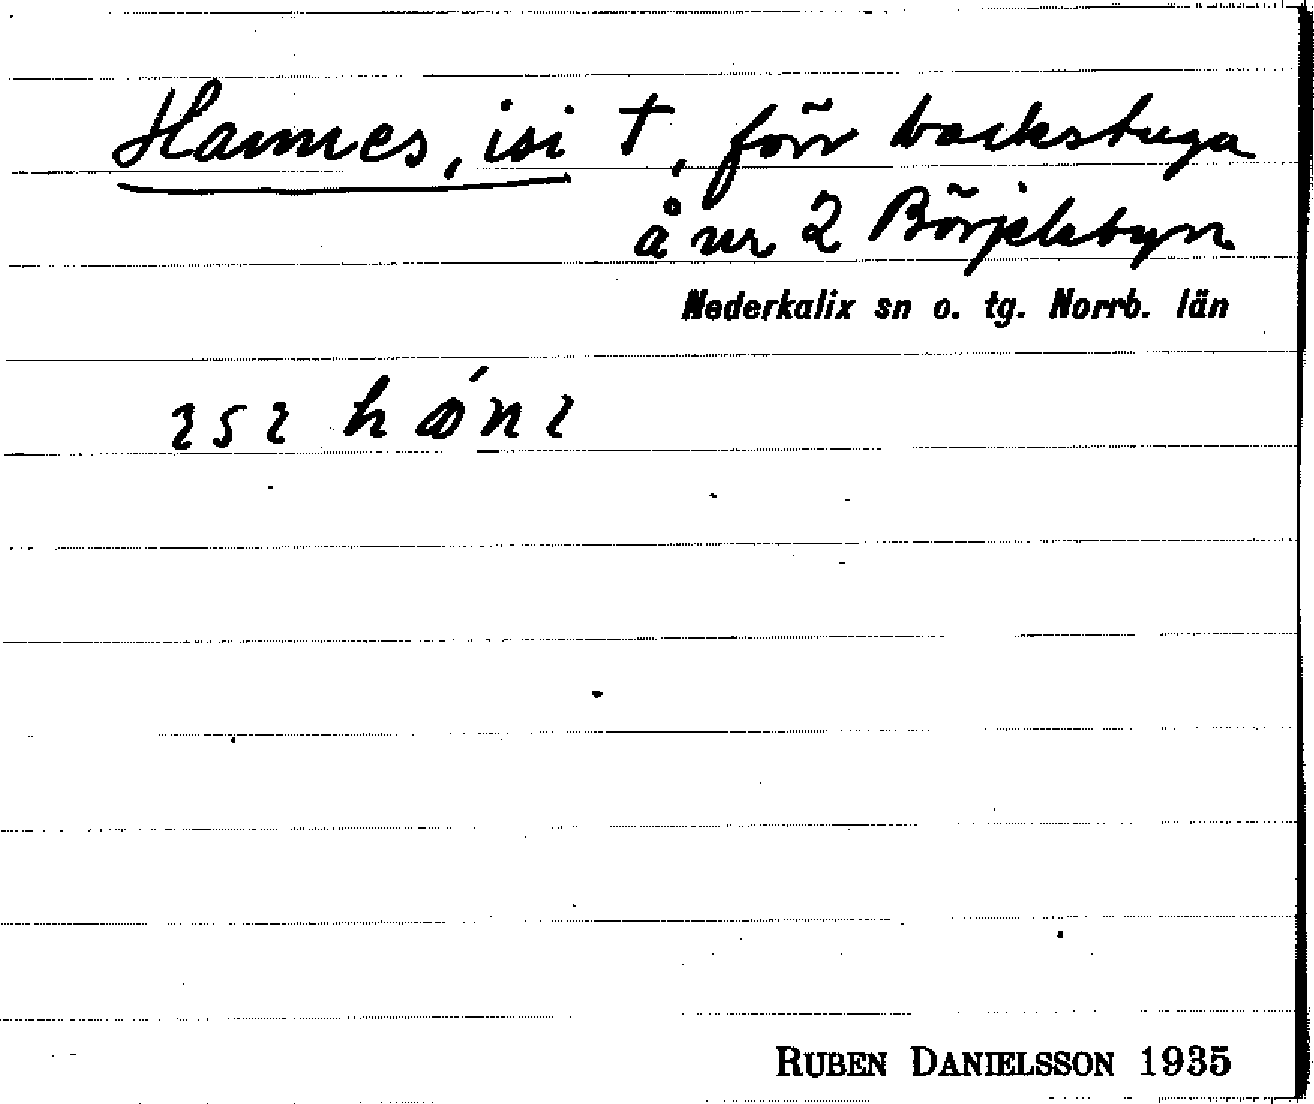 Hannes, isi †, förr backstuga
å nr 2 Börjelsbyn
Nederkalix sn o. tg. Norrb. län
RUBEN DANIELSSON 1935